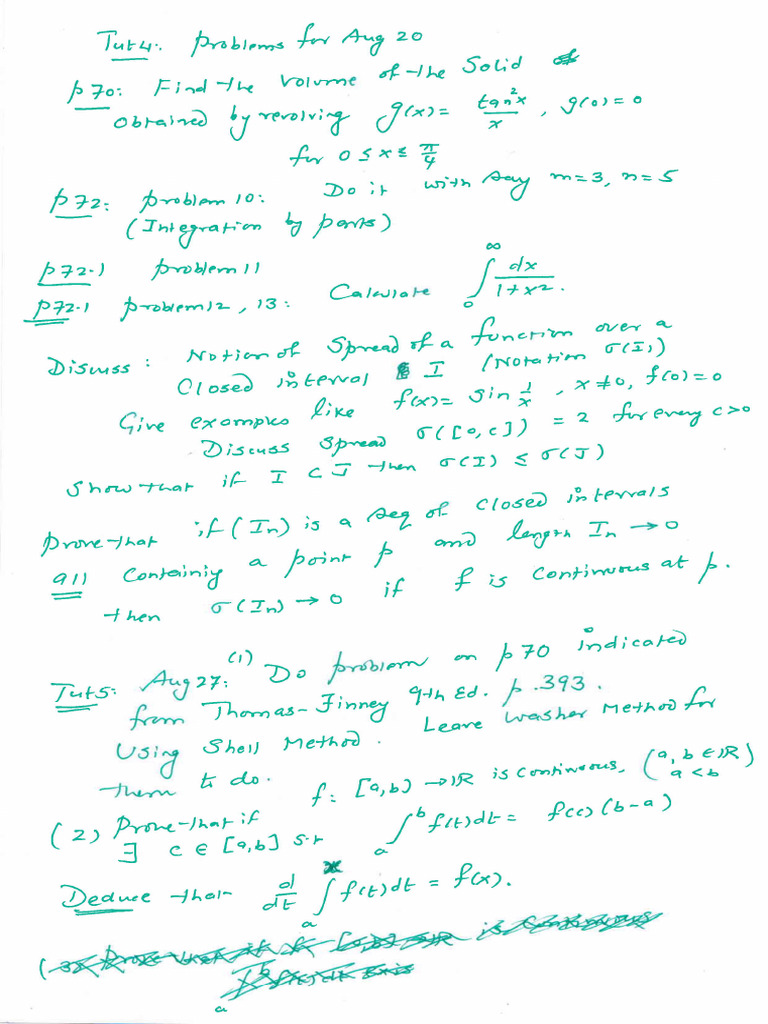 Tut4: Problems for Aug 20
p70: Find the volume of the solid
obtained by revolving g(x) = tan²x / x, g(0) = 0
for 0 ≤ x ≤ π/4
p72: problem 10: Do it with say m=3, n=5
(Integration by parts)
p72.1 problem 11
p72.1 problem 12, 13: Calculate ∫₀^∞ dx / 1+x².
Discuss: Notion of Spread of a function over a
closed interval I (Notation σ(I))
Give examples like f(x) = sin 1/x, x≠0, f(0)=0
Discuss spread σ([0,c]) = 2 for every c>0
Show that if I ⊂ J then σ(I) ≤ σ(J)
Prove that if (In) is a seq of closed intervals
all containiy a point p and length In → 0
then σ(In) → 0 if f is continuous at p.
Tut5: Aug 27: (1) Do problem on p70 indicated
from Thomas-Finney 9th Ed. p.393.
Using Shell Method. Leave washer Method for
them to do.
(2) Prove that if f: [a,b] → ℝ is continuous, (a, b ∈ ℝ, a < b)
∃ c ∈ [a,b] s.t ∫ₐᵇ f(t)dt = f(c) (b-a)
Deduce that d/dt ∫ₐˣ f(t)dt = f(x).